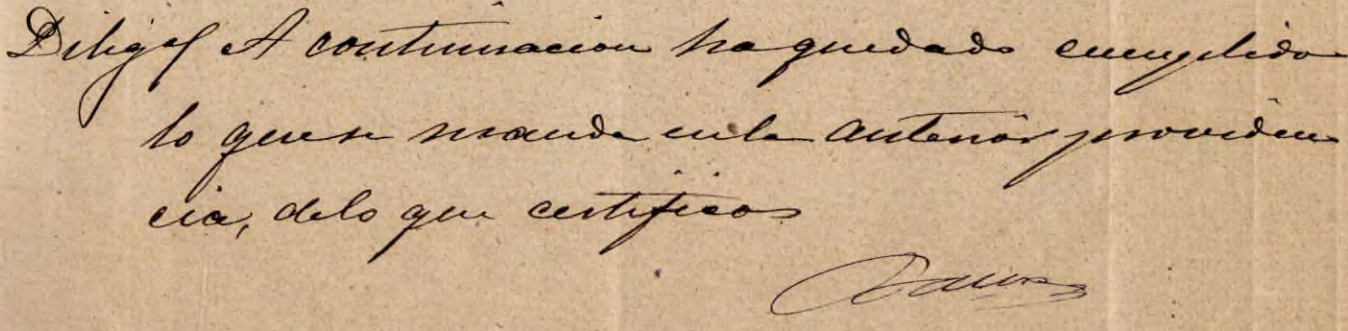 Diligª A continuacion ha quedado cumplido
lo que se manda en la anterior providen
cia, de lo que certifico